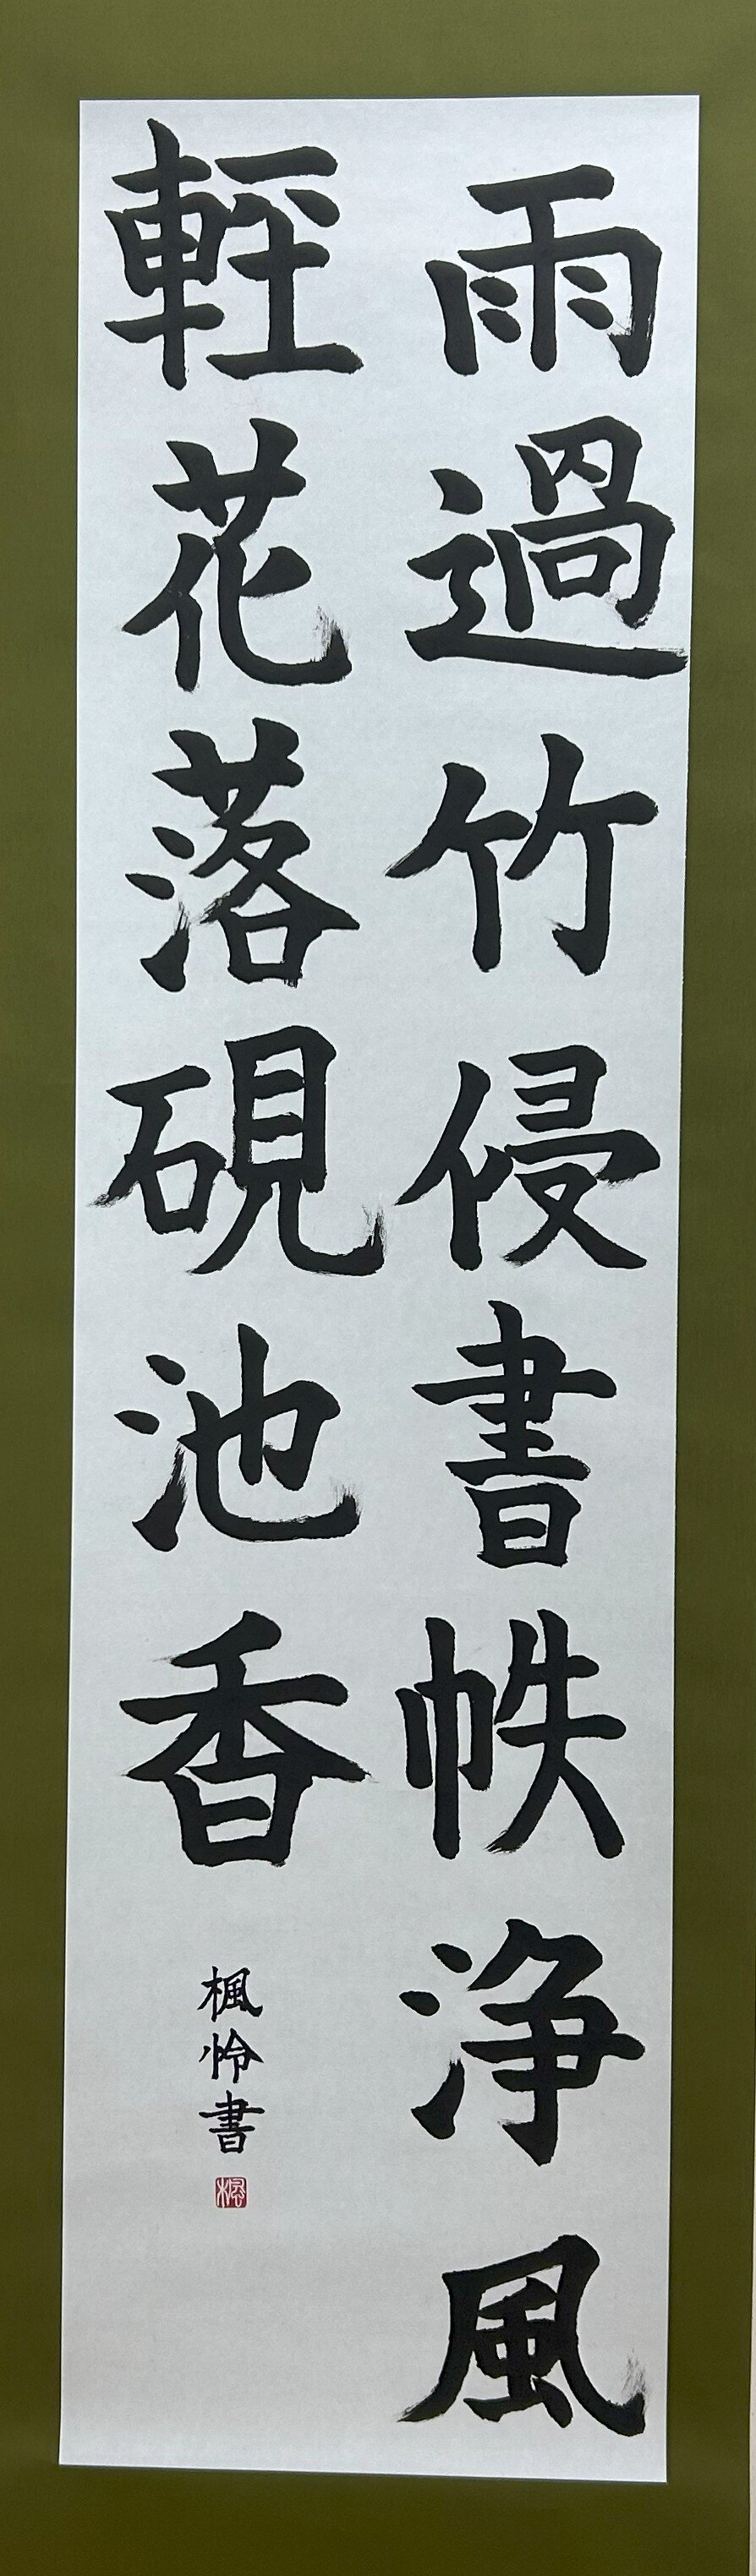 雨過竹侵書帙浄風
軽花落硯池香
楓怜書
楓